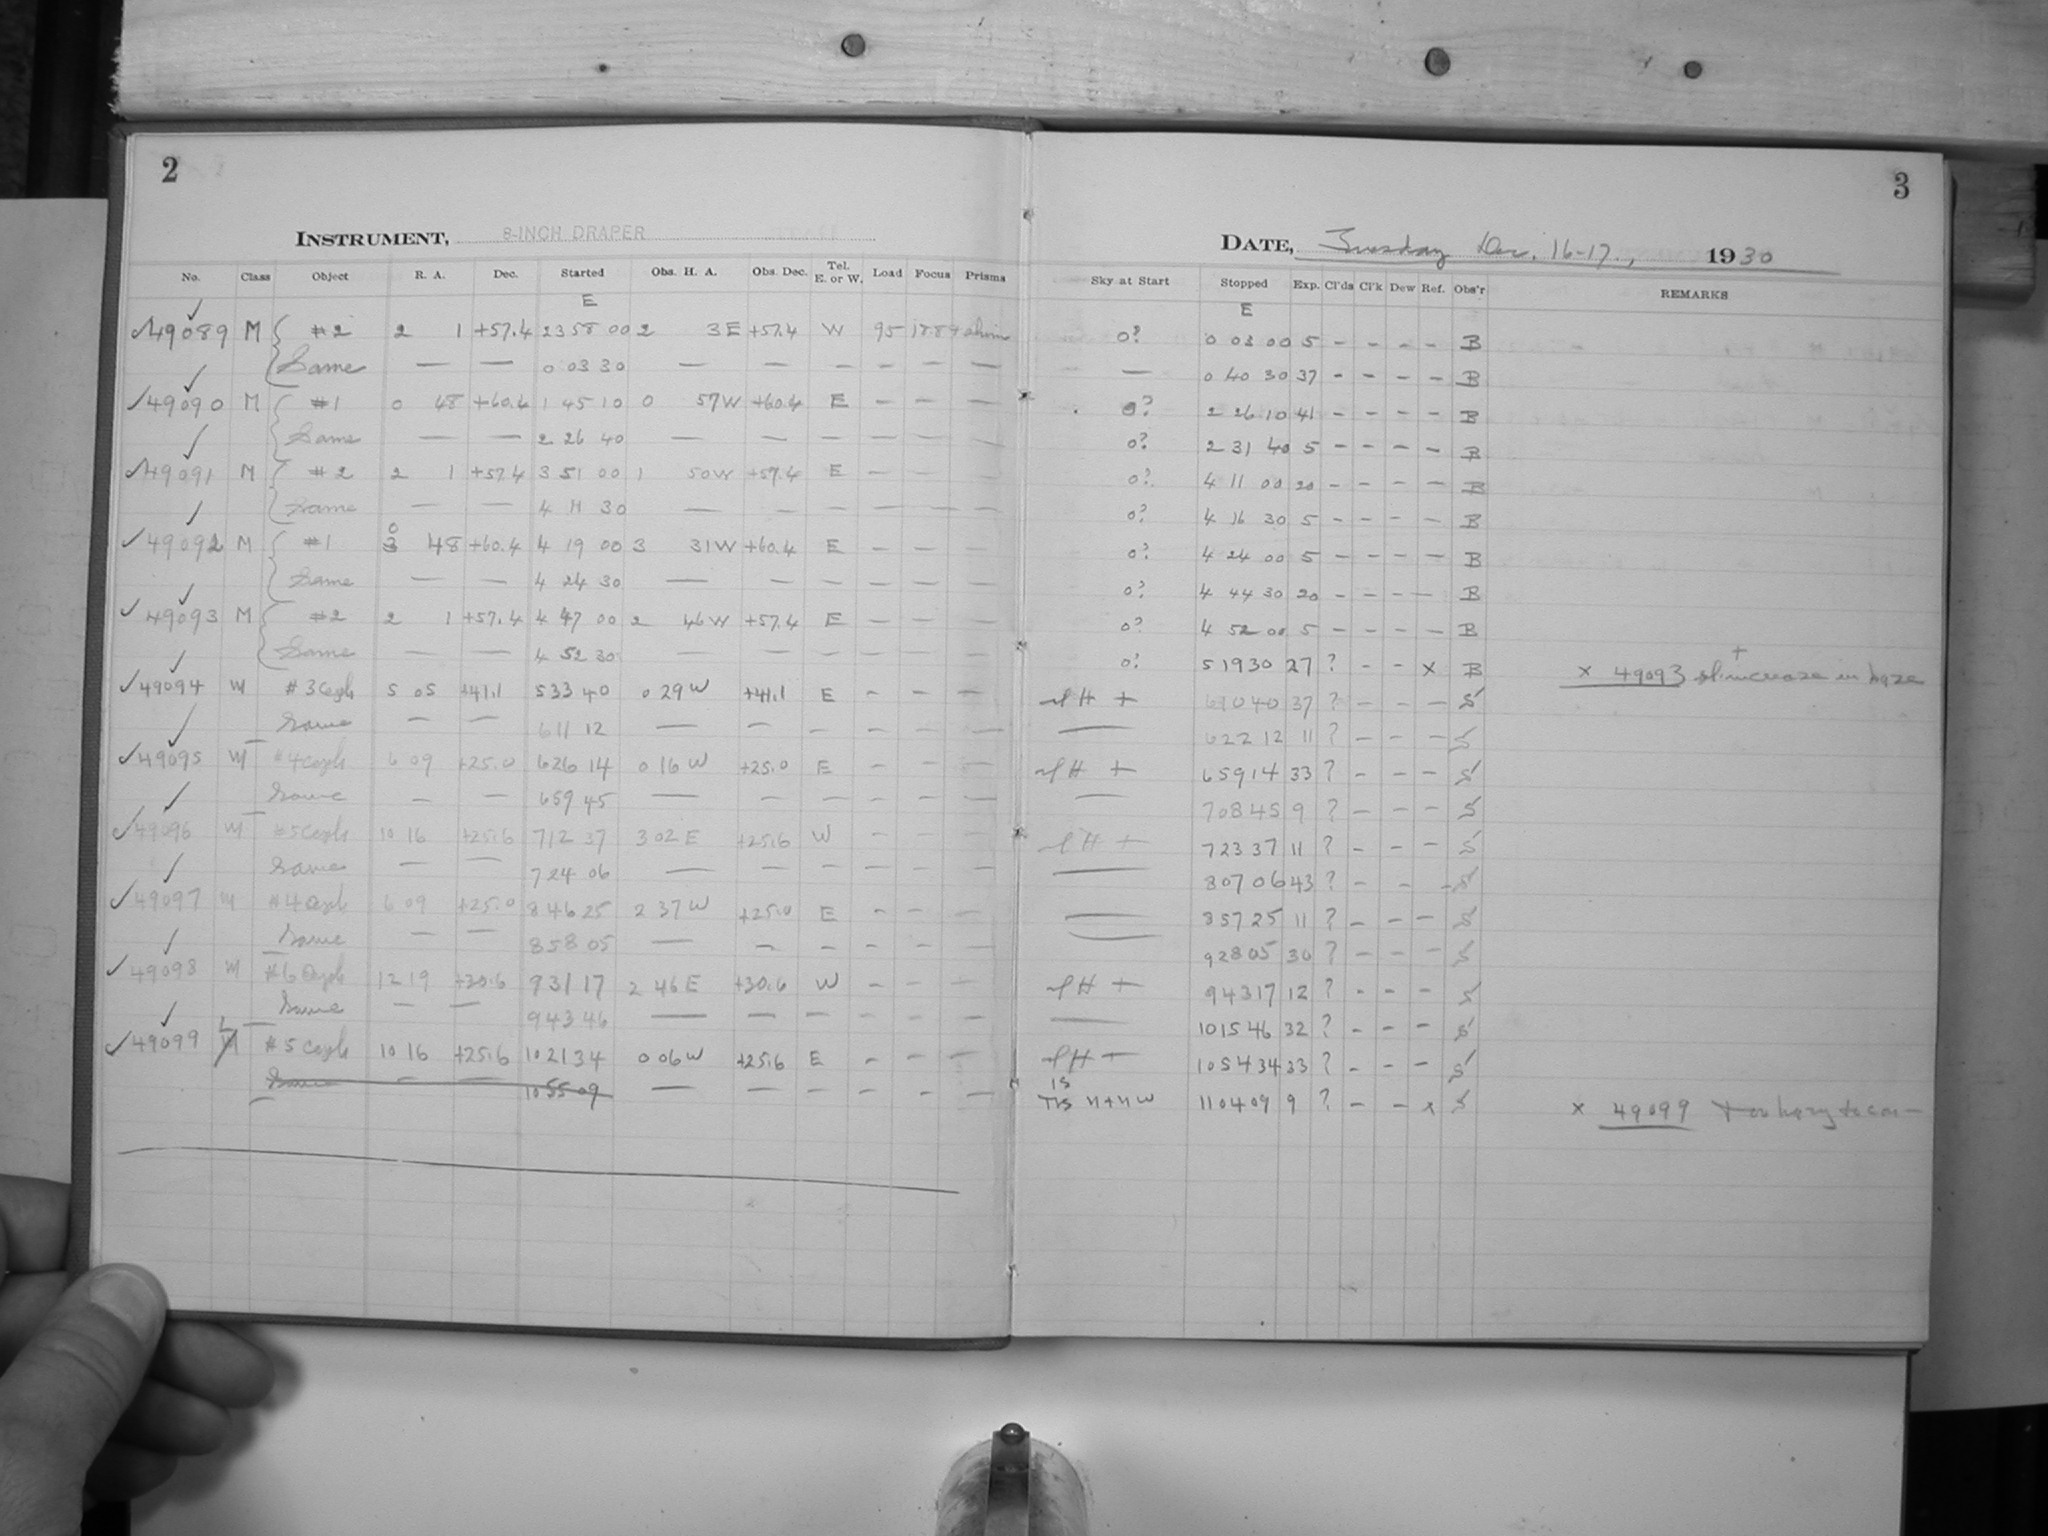 2
INSTRUMENT, 8-INCH DRAPER
No. Class Object R. A. Dec. Started Obs. H. A. Obs. Dec. Tel. E. or W. Load Focus Prisms
E
49089 M #2 2 1 +57.4 23 58 00 2 3 E +57.4 W 95
Same — — 0 03 30 — — — — — —
49090 M #1 0 48 +60.4 1 45 10 0 57 W +60.4 E — — —
Same — — 2 26 40 — — — — — —
49091 M #2 2 1 +57.4 3 51 00 1 50 W +57.4 E — —
Same — — 4 11 30 — — — — — —
49092 M #1 0 48 +60.4 4 19 00 3 31 W +60.4 E — — —
Same — — 4 24 30 — — — — — —
49093 M #2 2 1 +57.4 4 47 00 2 46 W +57.4 E — — —
Same — — 4 52 30 — — — — — —
49094 M #3 Ceph 5 05 +41.1 5 33 40 0 29 W +41.1 E — — —
Same — — 6 11 12 — — — — — —
49095 M #4 Ceph 6 09 +25.0 6 26 14 0 16 W +25.0 E — — —
Same — — 6 59 45 — — — — — —
49096 M #5 Ceph 10 16 +25.6 7 12 37 3 02 E +25.6 W — —
Same — — 7 24 06 — — — — — —
49097 M #4 Ceph 6 09 +25.0 8 46 25 2 37 W +25.0 E — — —
Same — — 8 58 05 — — — — — —
49098 M #6 Ceph 12 19 +30.6 9 31 17 2 46 E +30.6 W — — —
Same — — 9 43 46 — — — — — —
49099 L #5 Ceph 10 16 +25.6 10 21 34 0 06 W +25.6 E — — —
Same — — 10 55 09 — — — — — —
3
DATE, Tuesday Dec. 16-17, 1930
Sky at Start Stopped Exp. Cl'ds Cl'k Dew Ref. Obs'r REMARKS
E
0? 0 03 00 5 — — — — B
— 0 40 30 37 — — — — B
0? 2 26 10 41 — — — — B
0? 2 31 40 5 — — — — B
0? 4 11 00 20 — — — — B
0? 4 16 30 5 — — — — B
0? 4 24 00 5 — — — — B
0? 4 44 30 20 — — — — B
0? 4 52 00 5 — — — — B
0? 5 19 30 27 ? — — x B x 49093 sl. increase in haze
sl H + 37 ? — — — S
— 6 22 12 11 ? — — — S
sl H + 6 59 14 33 ? — — — S
— 7 08 45 9 ? — — — S
sl H + 7 23 37 11 ? — — — S
— 8 07 06 43 ? — — — S
— 8 57 25 11 ? — — — S
— 9 28 05 30 ? — — — S
sl H + 9 43 17 12 ? — — — S
— 10 15 46 32 ? — — — S
sl H + 10 54 34 33 ? — — — S
11 04 09 9 ? — — x S x 49099 too hazy to con—